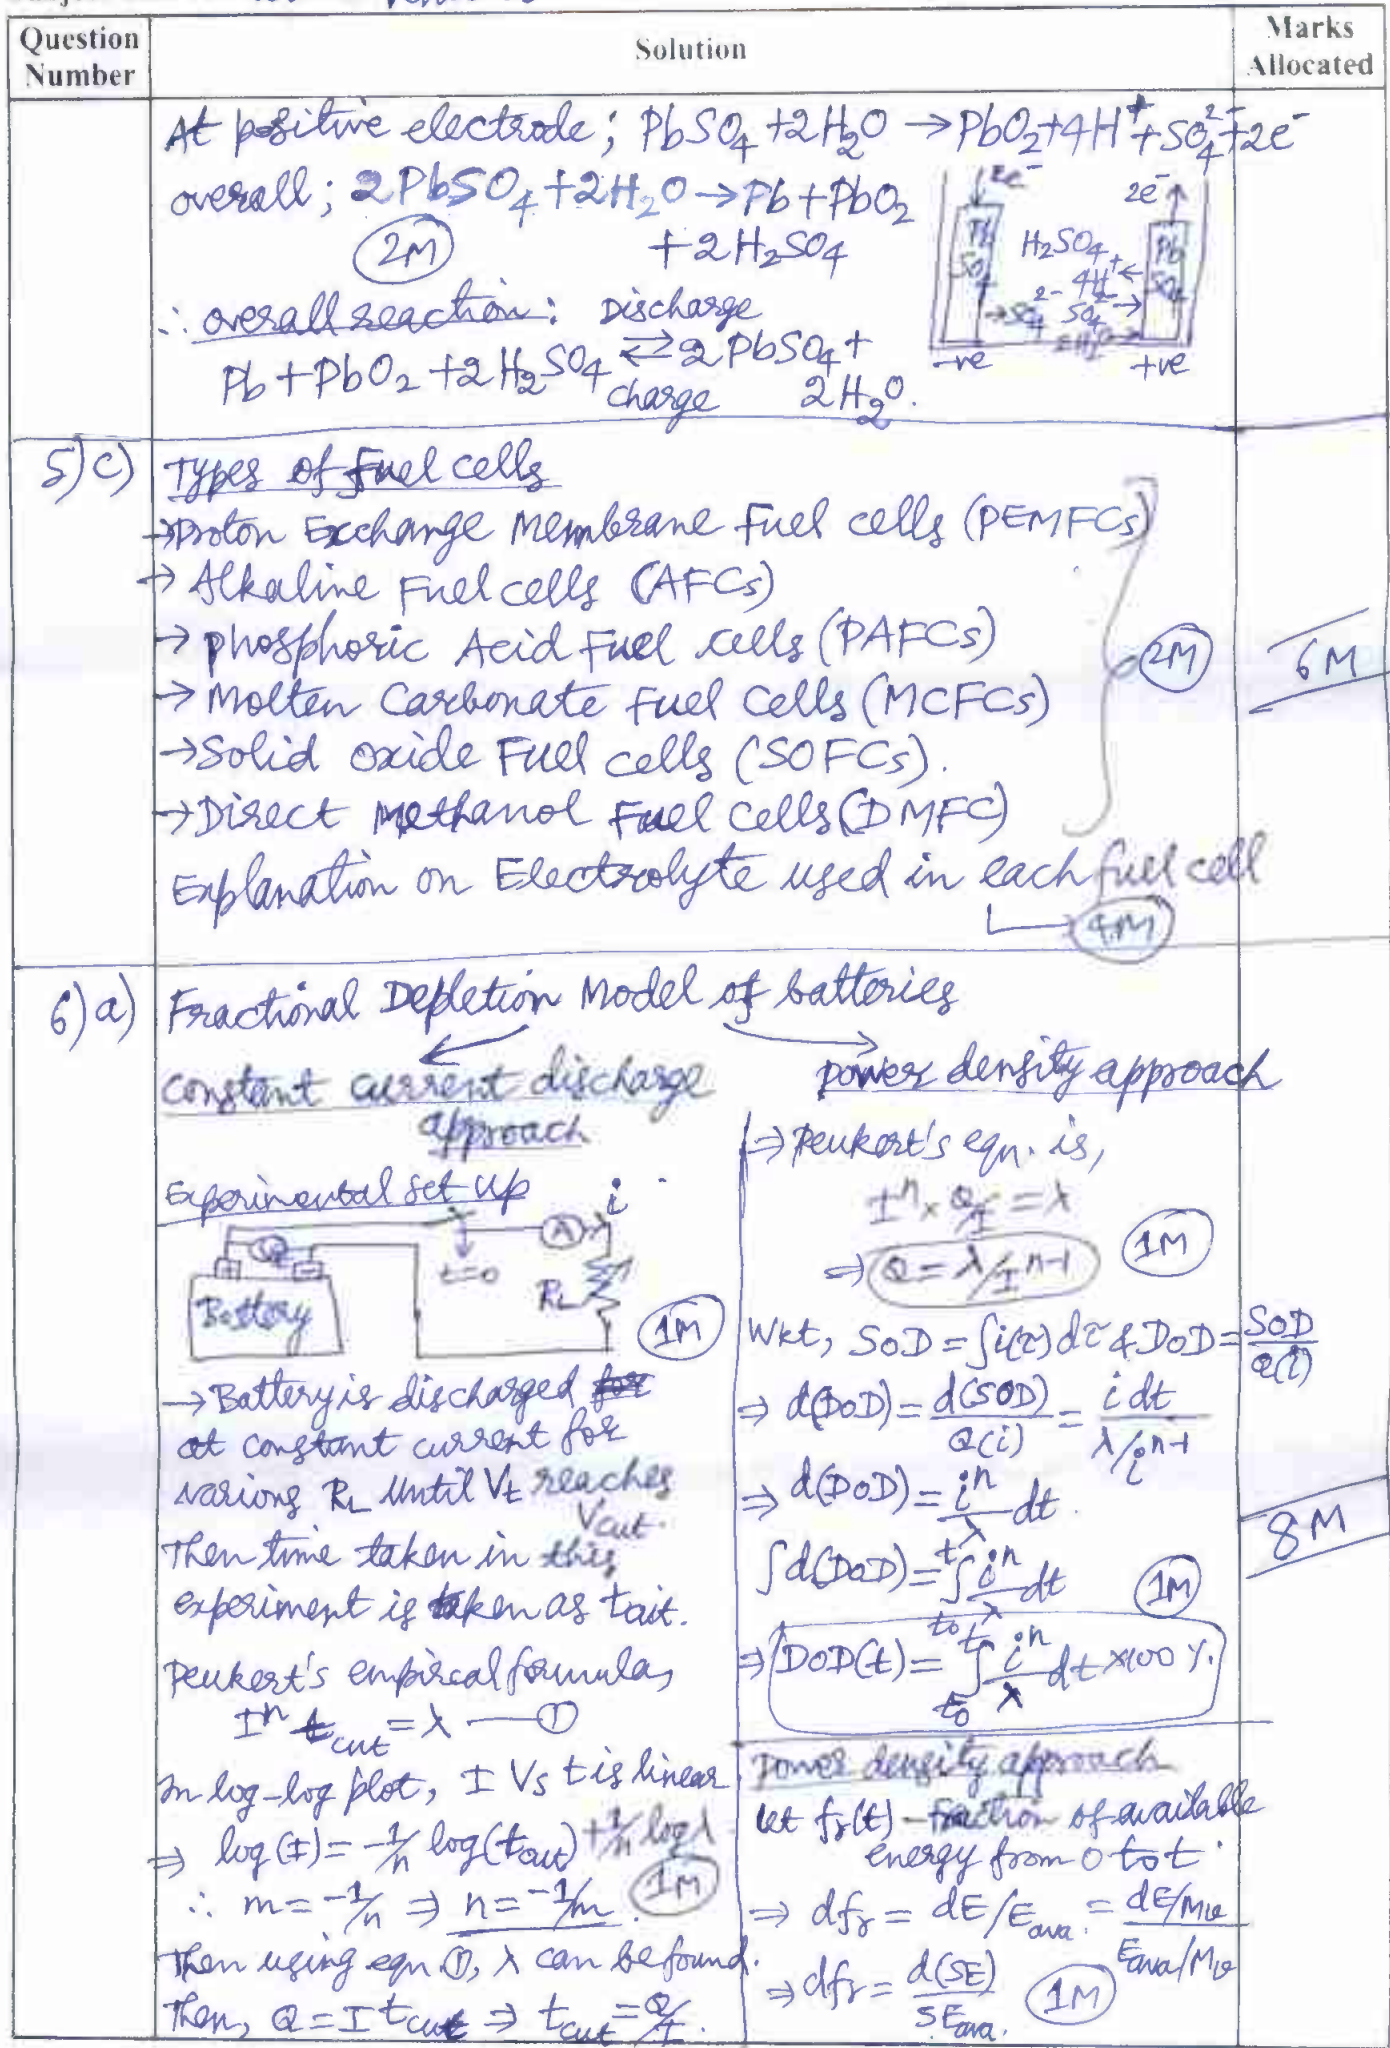 Question Number
Solution
Marks Allocated
At positive electrode; PbSO4 + 2H2O → PbO2 + 4H+ + SO4^2- + 2e-
overall; 2PbSO4 + 2H2O → Pb + PbO2
+ 2H2SO4
2M
2e-
2e-
H2SO4
Pb SO4
Pb SO4
4H+ ←
→ SO4^2- SO4^2- →
-ve
+ve
∴ overall reaction: Discharge
Pb + PbO2 + 2H2SO4 ⇄ 2PbSO4 +
charge 2H2O.
5)c) Types of Fuel cells
→ Proton Exchange Membrane Fuel cells (PEMFCs)
→ Alkaline Fuel cells (AFCs)
→ phosphoric Acid Fuel cells (PAFCs)
→ Molten Carbonate Fuel Cells (MCFCs)
→ Solid oxide Fuel cells (SOFCs).
→ Direct Methanol Fuel Cells (DMFC)
2M
6M
Explanation on Electrolyte used in each fuel cell
4M
6)a) Fractional Depletion Model of batteries
constant current discharge
approach
Experimental set up
i
A
t=0
RL
Battery
1M
→ Battery is discharged for
at constant current for
various RL until Vt reaches
Vcut.
Then time taken in this
experiment is taken as tcut.
Peukert's empirical formula,
I^n tcut = λ — ①
In log-log plot, I Vs t is linear
⇒ log(I) = -1/n log(tcut) + 1/n log λ
∴ m = -1/n ⇒ n = -1/m.
1M
Then using eqn ①, λ can be found.
Then, Q = I tcut ⇒ tcut = Q/I.
power density approach
⇒ Peukert's eqn. is,
I^n × Q/I = λ
⇒ Q = λ/I^n-1
1M
Wkt, SoD = ∫i(τ)dτ & DoD = SOD/Q(i)
⇒ d(DoD) = d(SOD)/Q(i) = i dt/λ/i^n-1
⇒ d(DoD) = i^n/λ dt.
∫d(DoD) = ∫t0^t i^n/λ dt
1M
⇒ DoD(t) = ∫t0^t i^n/λ dt ×100 %.
8M
Power density approach
let fr(t) - fraction of available
energy from 0 to t
⇒ dfr = dE/Eava. = dE/Mv/Eava/Mv
⇒ dfr = d(SE)/SEava.
1M